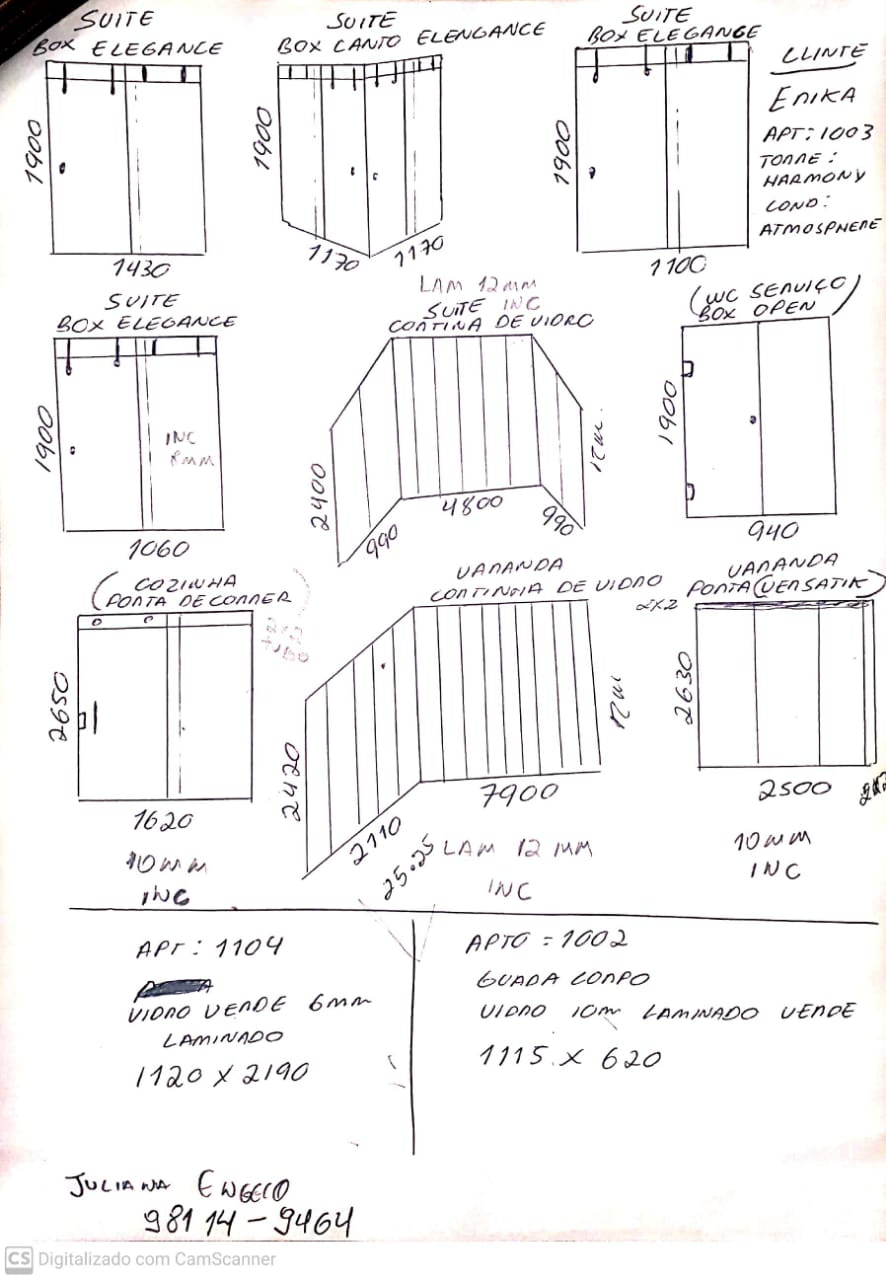 SUITE
BOX ELEGANCE
1900
1430
SUITE
BOX CANTO ELENGANCE
1900
1170
1170
SUITE
BOX ELEGANGE
1900
1100
CLINTE
ERIKA
APT: 1003
TORRE:
HARMONY
COND:
ATMOSPHERE
SUITE
BOX ELEGANCE
1900
INC
8mm
1060
LAM 12mm
SUITE INC
CORTINA DE VIDRO
2400
990
4800
990
(WC SERVIÇO)
BOX OPEN
1900
940
(COZINHA
PORTA DE CORRER)
2x2
TUBO
2650
1620
10mm
INC
VARANDA
DE VIDRO
2420
2110
7900
25.25
LAM 12 MM
INC
VARANDA
2X2 PORTA (VERSATIK)
2630
2500
2x2
10mm
INC
APT: 1104
VIDRO VERDE 6mm
LAMINADO
1120 X 2190
APTO = 1002
GUADA CORPO
VIDRO 10m LAMINADO VERDE
1115 X 620
JULIANA
98114-9464
CS Digitalizado com CamScanner